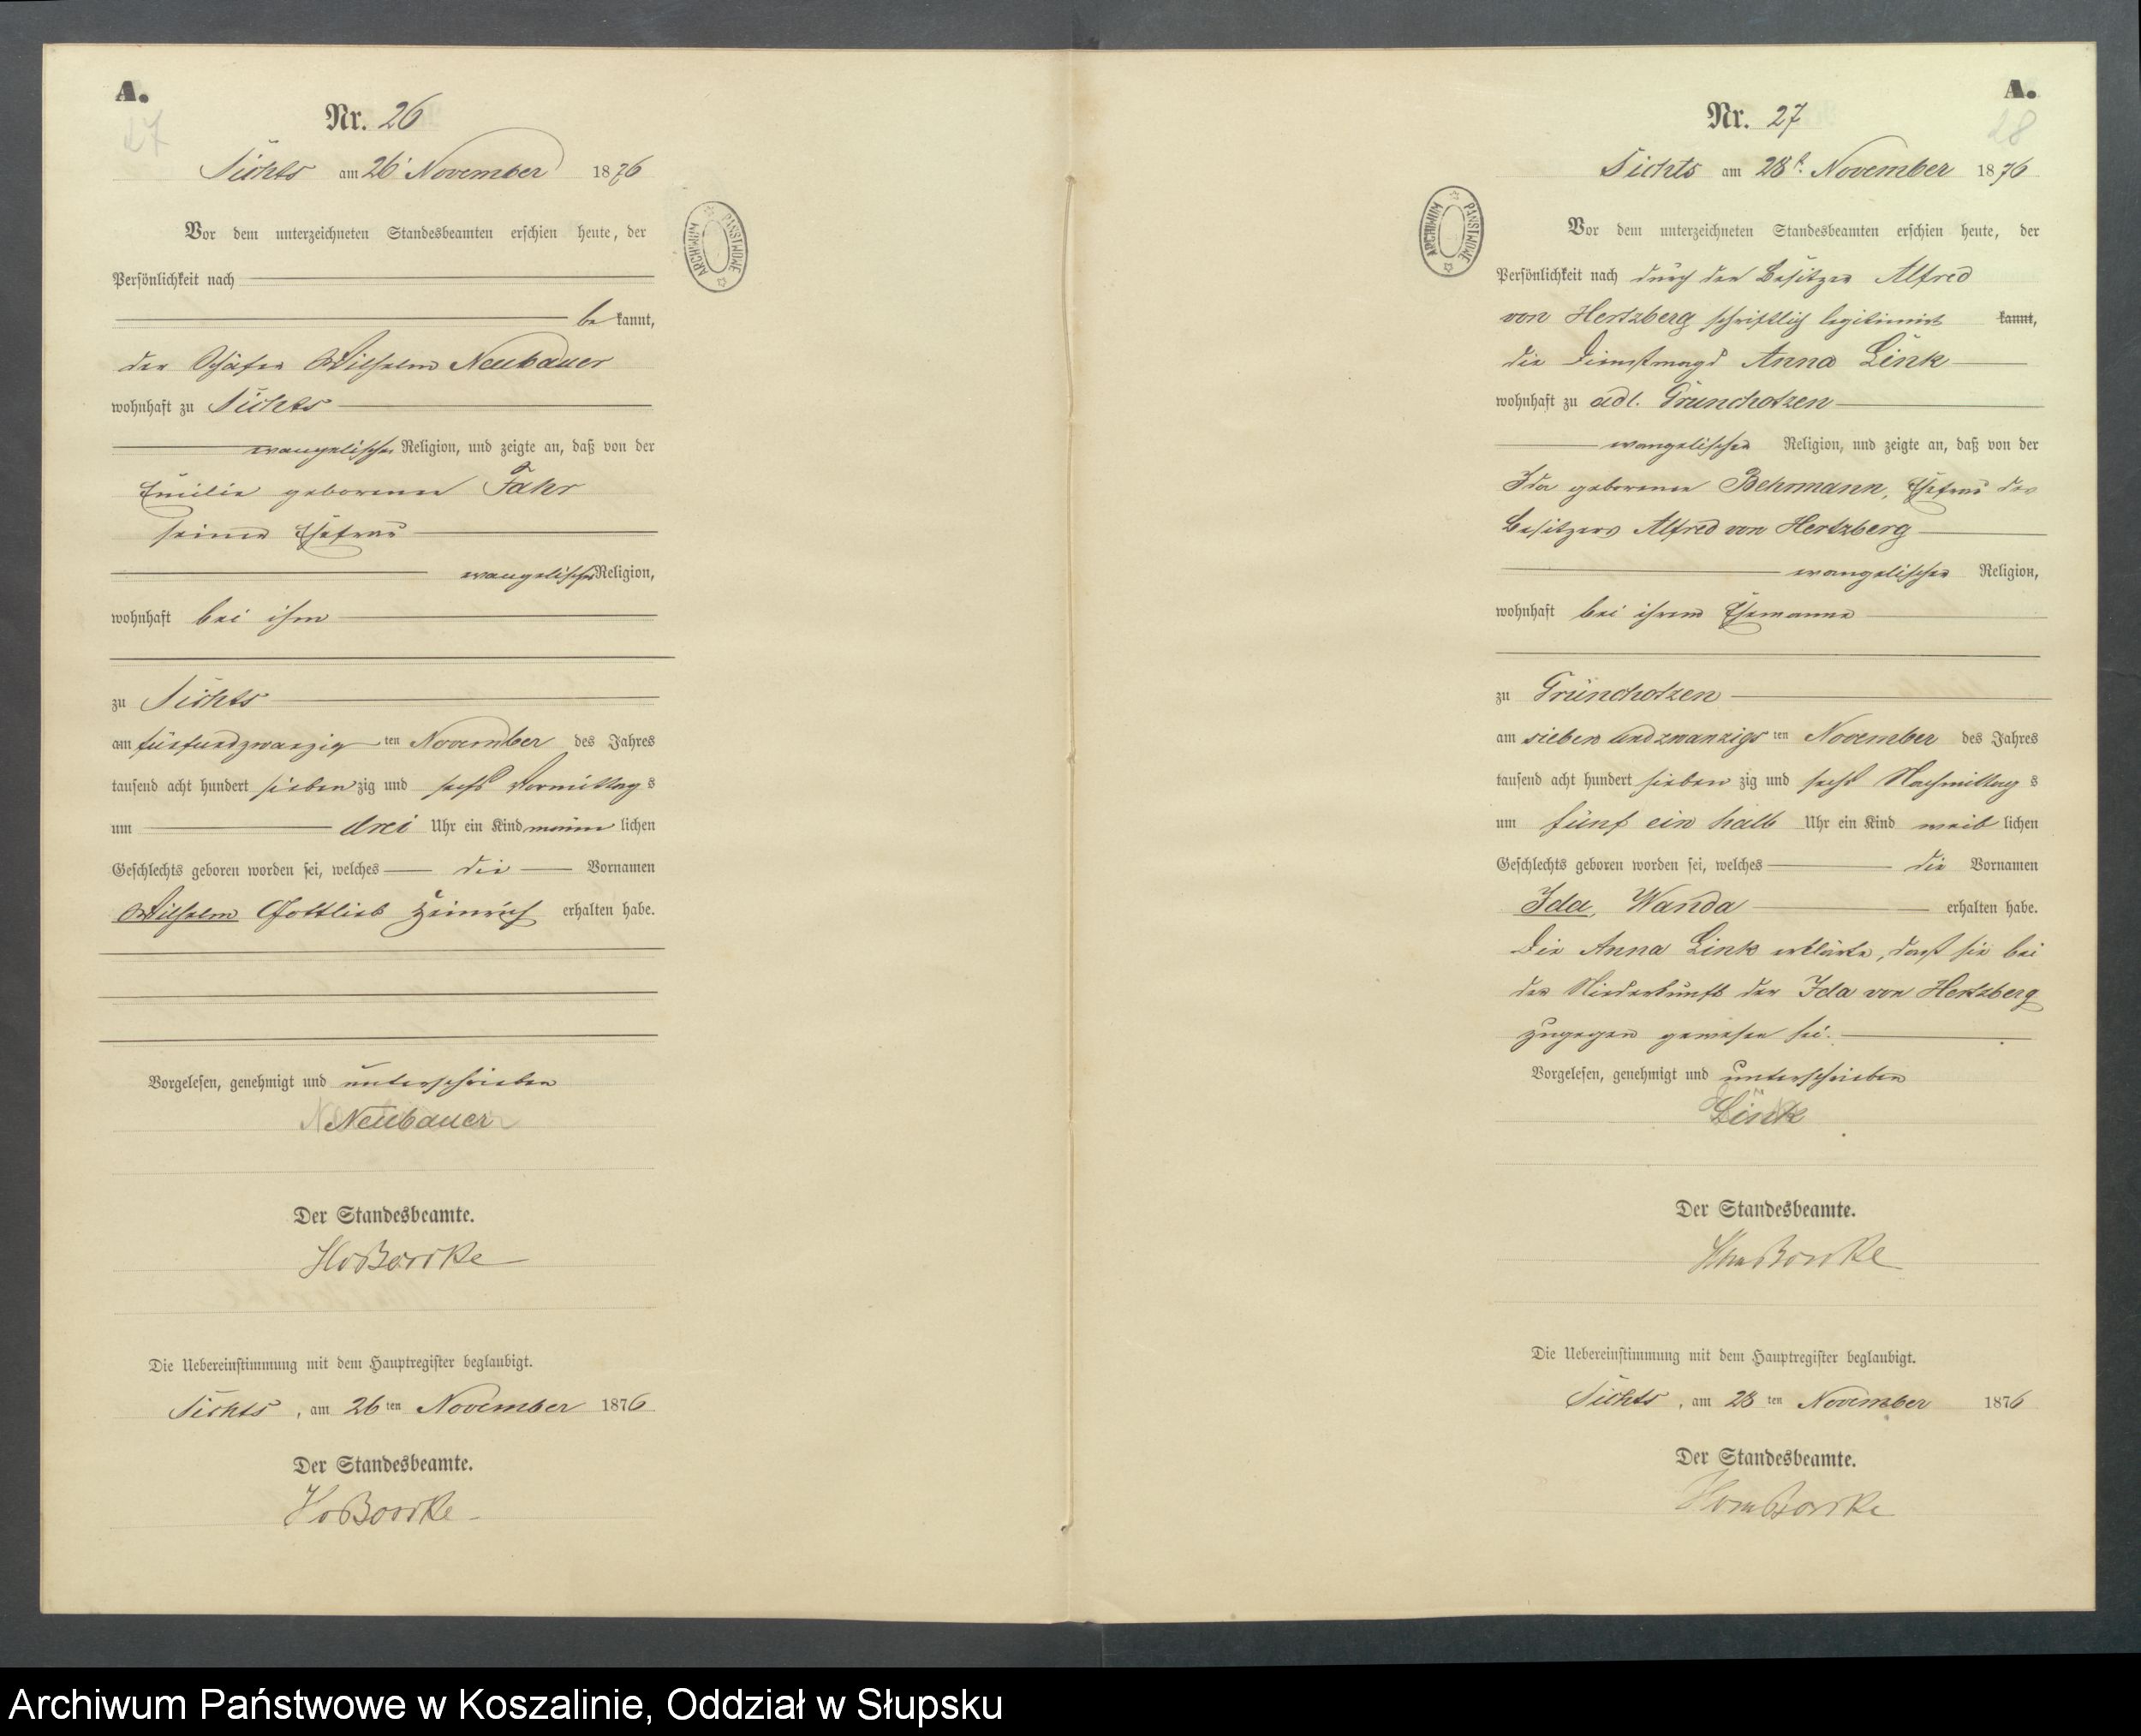 A.
27
Nr. 26
Sichts am 26t November 1876
Vor dem unterzeichneten Standesbeamten erschien heute, der
Persönlichkeit nach
be kannt,
der Schäfer Wilhelm Neubauer
wohnhaft zu Sichts
evangelischer Religion, und zeigte an, daß von der
Emilie geborenen Fahr
seiner Ehefrau
evangelischer Religion,
wohnhaft bei ihm
zu Sichts
am fünfundzwanzig ten November des Jahres
tausend acht hundert sieben zig und sechs Vormittag s
um drei Uhr ein Kind männ lichen
Geschlechts geboren worden sei, welches die Vornamen
Wilhelm Gottlieb Heinrich erhalten habe.
Vorgelesen, genehmigt und unterschrieben
Neubauer
Der Standesbeamte.
HvBorcke
Die Uebereinstimmung mit dem Hauptregister beglaubigt.
Sichts, am 26 ten November 1876
Der Standesbeamte.
HvBorcke
ARCHIWUM PAŃSTWOWE
A.
28
Nr. 27
Sichts am 28t November 1876
Vor dem unterzeichneten Standesbeamten erschien heute, der
Persönlichkeit nach durch den Besitzer Alfred
von Hertzberg schriftlich legitimirt kannt,
die Dienstmagd Anna Link
wohnhaft zu adl. Grünchotzen
evangelischer Religion, und zeigte an, daß von der
Ida geborenen Behrmann, Ehefrau des
Besitzers Alfred von Hertzberg
evangelischer Religion,
wohnhaft bei ihrem Ehemanne
zu Grünchotzen
am sieben und zwanzigs ten November des Jahres
tausend acht hundert sieben zig und sechs Nachmittag s
um fünf ein halb Uhr ein Kind weib lichen
Geschlechts geboren worden sei, welches die Vornamen
Ida, Wanda erhalten habe.
Die Anna Link erklärte, daß sie bei
der Niederkunft der Ida von Hertzberg
zugegen gewesen sei.
Vorgelesen, genehmigt und unterschrieben
Link
Der Standesbeamte.
HvonBorcke
Die Uebereinstimmung mit dem Hauptregister beglaubigt.
Sichts, am 28 ten November 1876
Der Standesbeamte.
HvonBorcke
ARCHIWUM PAŃSTWOWE
Archiwum Państwowe w Koszalinie, Oddział w Słupsku